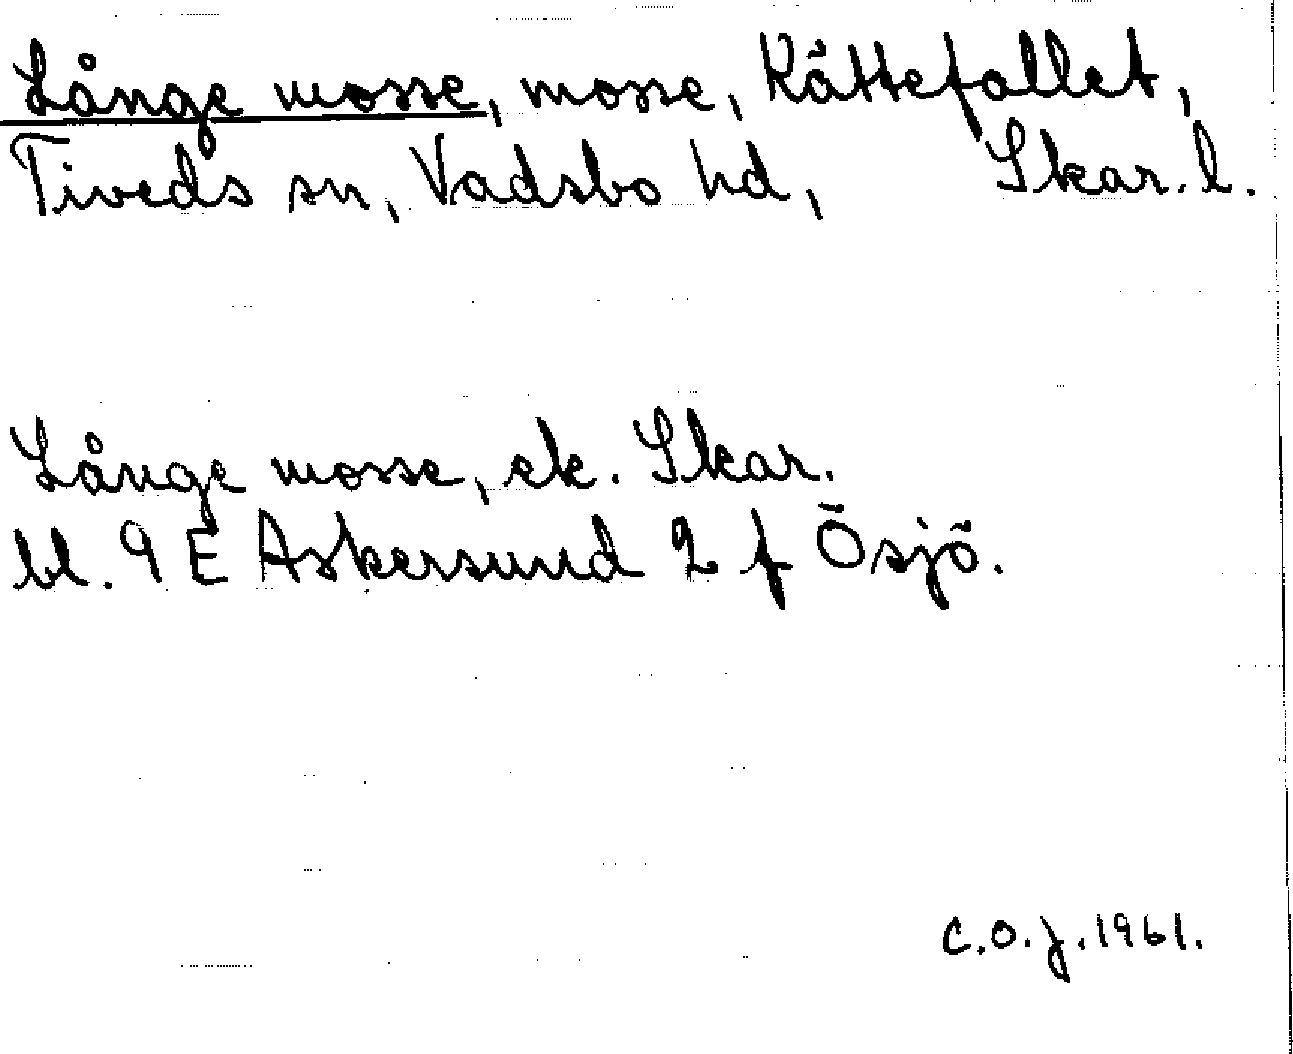 Långe mosse, mosse, Kättefallet,
Tiveds sn, Vadsbo hd, Skar. l.
Långe mosse, ek. Skar.
bl. 9 E Askersund 2 f Ösjö.
C.O.J. 1961.